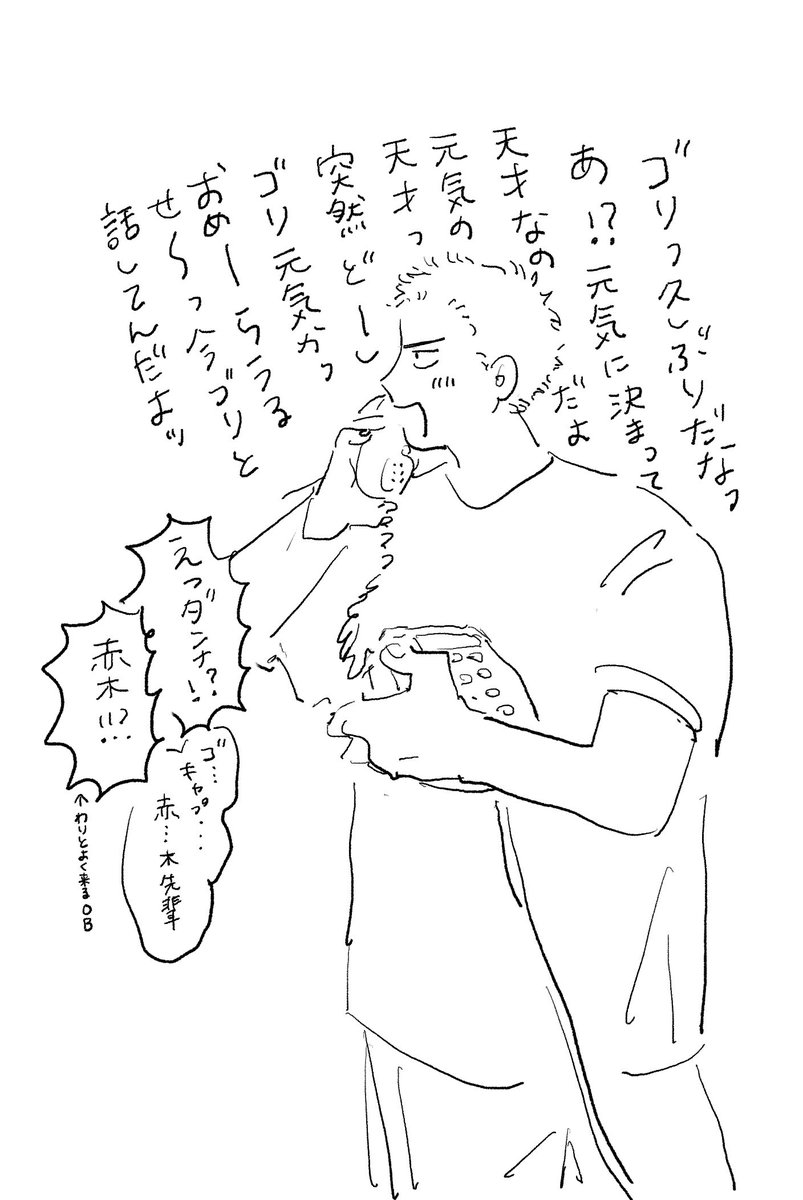 ゴリっ久しぶりだなっ
あ!?元気に決まって
だよ
天才なの
元気の
天才っ
突然どーし
ゴリ元気かっ
おめーらうる
せ〜っ今ゴリと
話してんだよッ
えっダンナ!?
赤木!!?
ゴ…
キャプ…
赤…木先輩
↑わりとよく来るOB